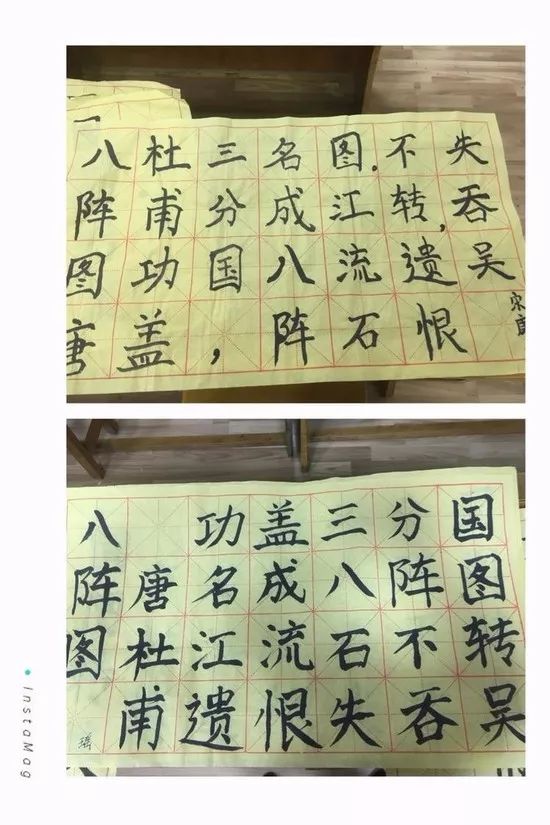 八阵图唐
杜甫功盖
三分国，
名成八阵
图.江流石
不转,遗恨
失吞吴
八阵图
唐杜甫
功盖三分国
名成八阵图
江流石不转
遗恨失吞吴
瑶
InstaMag